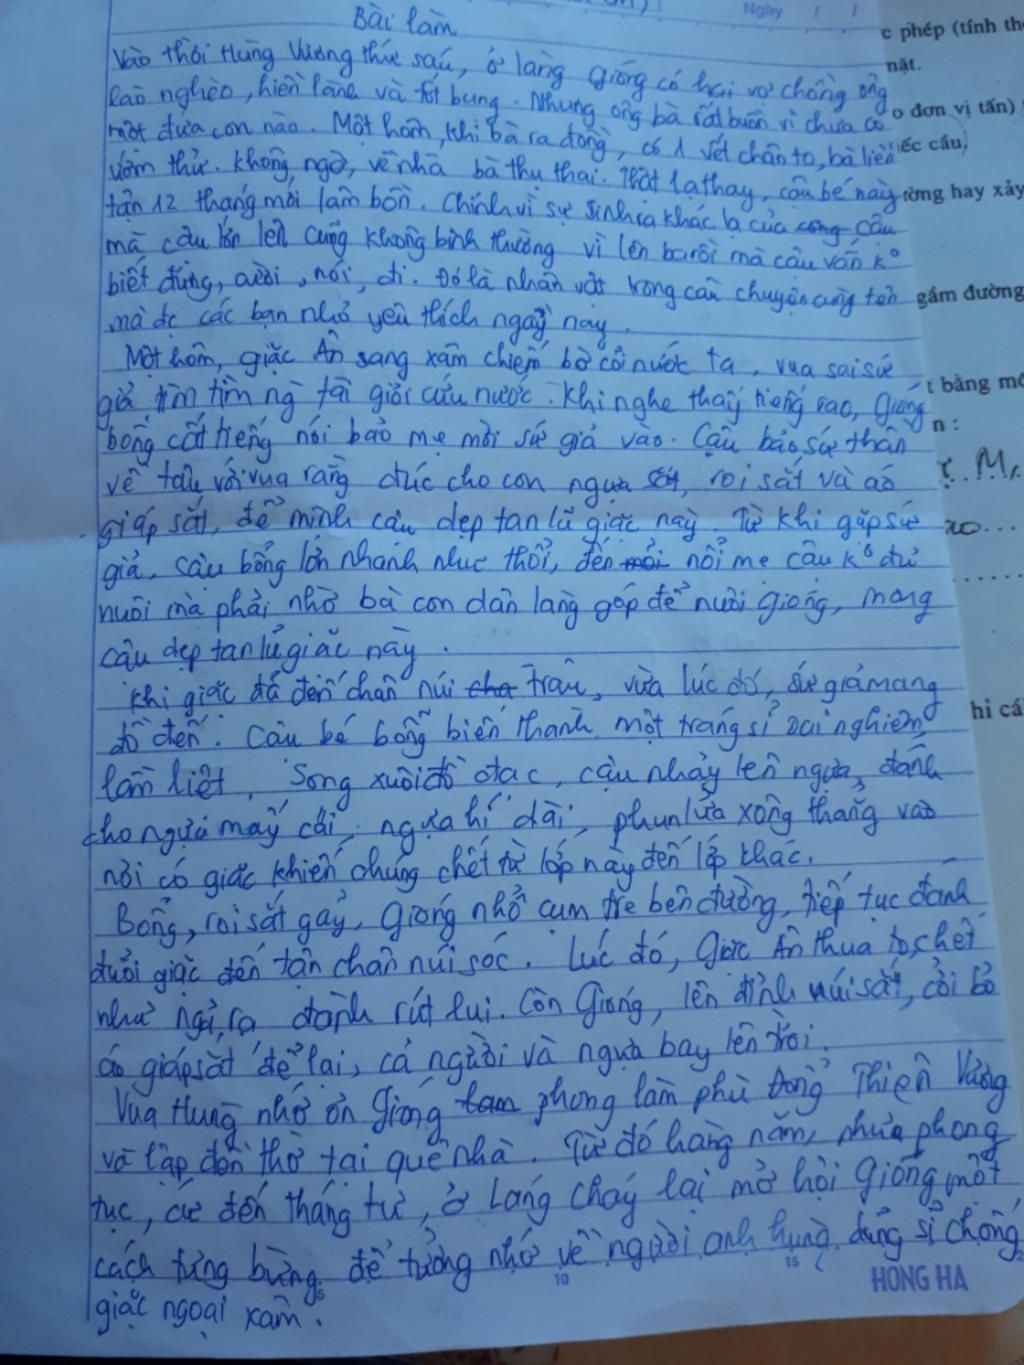 Ngày / /
Bài làm
Vào thời Hùng Vương thứ sáu, ở làng Gióng có hai vợ chồng ông
lão nghèo, hiền lành và tốt bụng. Nhưng ông bà rất buồn vì chưa có
một đứa con nào. Một hôm, khi bà ra đồng, có 1 vết chân to, bà liền
ướm thử. Không ngờ, về nhà bà thụ thai. Thật lạ thay, cậu bé này
tận 12 tháng mới lâm bồn. Chính vì sự sinh ra khác lạ của cậu
mà cậu lớn lên cũng không bình thường vì lên ba rồi mà cậu vẫn ko
biết đứng, cười, nói, đi. Đó là nhân vật trong câu chuyện cùng tên
mà đc các bạn nhỏ yêu thích ngày nay.
Một hôm, giặc Ân sang xâm chiếm bờ cõi nước ta, vua sai sứ
giả tìm ng tài giỏi cứu nước. Khi nghe thấy tiếng rao, Gióng
bỗng cất tiếng nói bảo mẹ mời sứ giả vào. Cậu bảo sứ thần
về tâu với vua rằng đúc cho con ngựa sắt, roi sắt và áo
giáp sắt, để mình cậu dẹp tan lũ giặc này. Từ khi gặp sứ
giả, cậu bỗng lớn nhanh như thổi, đến nỗi mẹ cậu ko đủ
nuôi mà phải nhờ bà con dân làng góp để nuôi Gióng, mong
cậu dẹp tan lũ giặc này.
Khi giặc đã đến chân núi Trâu, vừa lúc đó, sứ giả mang
đồ đến. Cậu bé bỗng biến thành một tráng sĩ oai nghiêm,
lẫm liệt. Song xuôi đồ đạc, cậu nhảy lên ngựa, đánh
cho ngựa mấy cái, ngựa hí dài, phun lửa xông thẳng vào
nơi có giặc khiến chúng chết từ lớp này đến lớp khác.
Bỗng, roi sắt gãy, Gióng nhổ cụm tre bên đường, tiếp tục đánh
đuổi giặc đến tận chân núi sóc. Lúc đó, giặc Ân thua to, chết
như ngả rạ đành rút lui. Còn Gióng, lên đỉnh núi sắt, cởi bỏ
áo giáp sắt để lại, cả người và ngựa bay lên trời.
Vua Hùng nhớ ơn Gióng phong làm phù Đổng Thiên Vương
và lập đền thờ tại quê nhà. Từ đó hàng năm, như phong
tục, cứ đến tháng tư, ở Làng Cháy lại mở hội Gióng một
cách tưng bừng để tưởng nhớ về người anh hùng dũng sĩ chống
giặc ngoại xâm.
5 10 15
HONG HA
c phép (tính th
nật.
o đơn vị tấn)
iếc cầu,
ường hay xảy
gầm đường
t bằng mộ
n :
hỉ cá